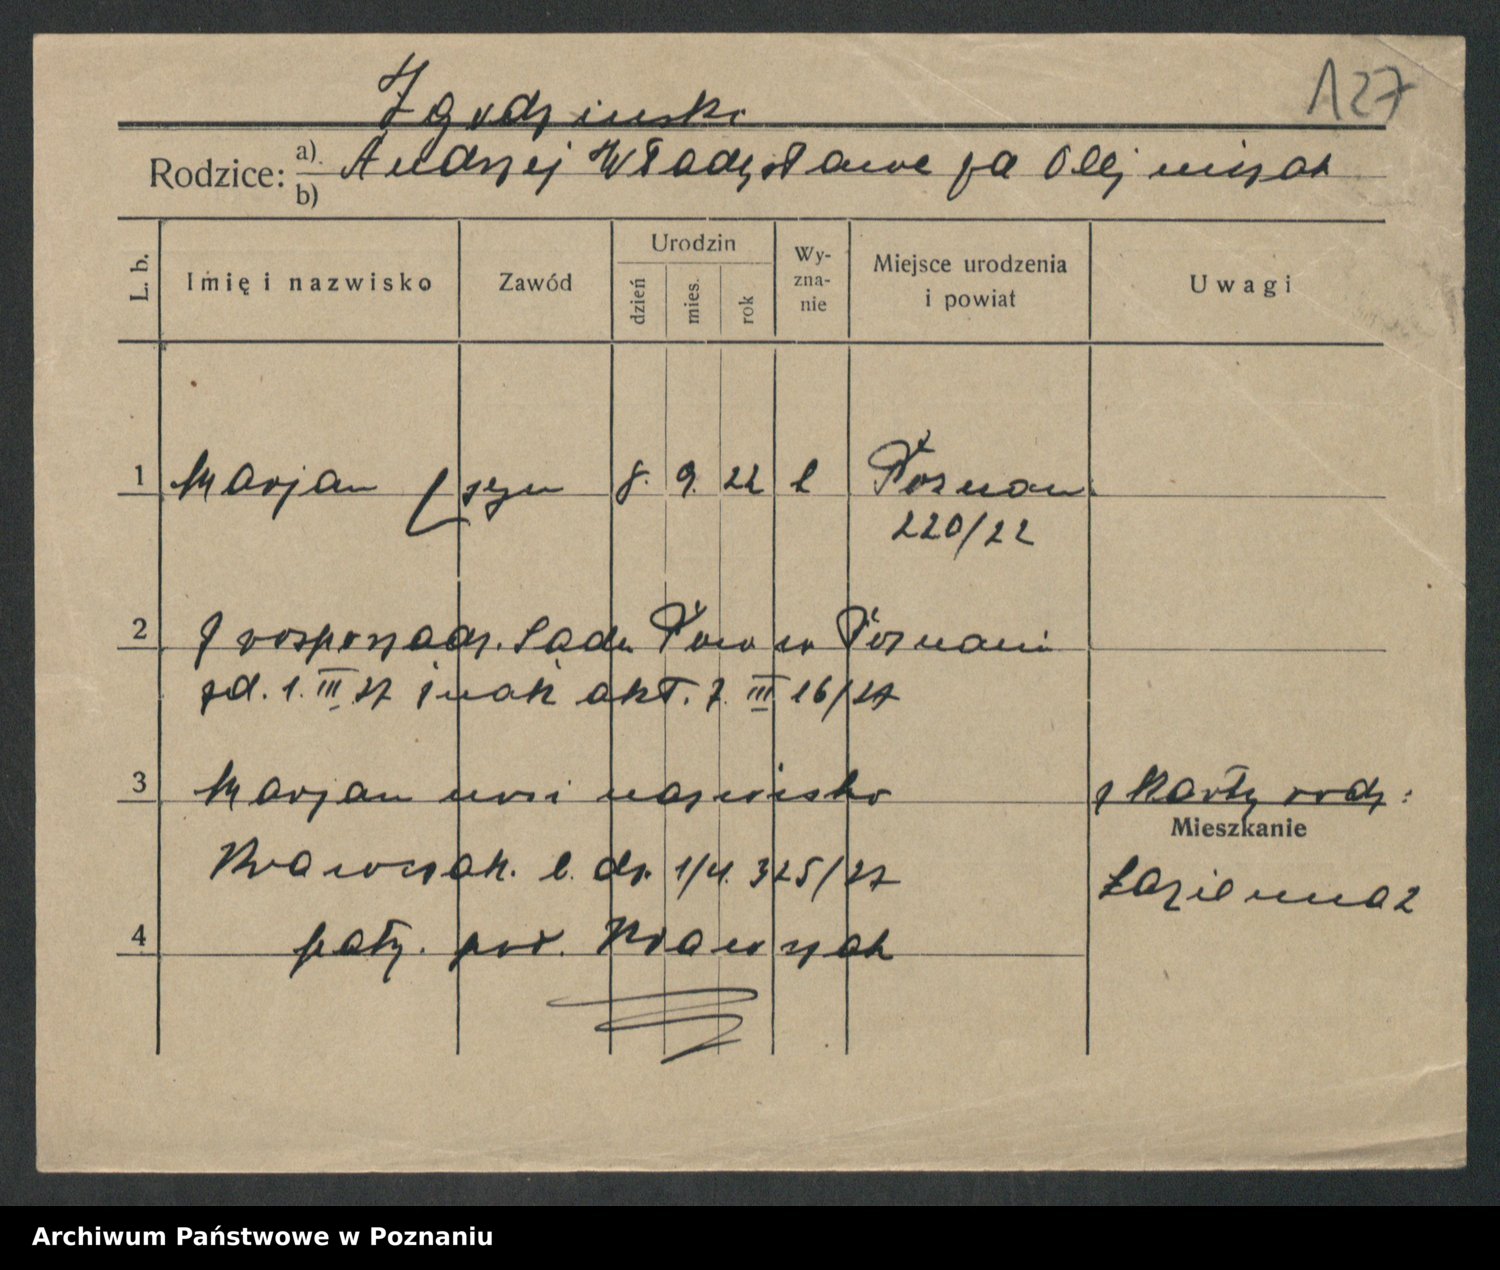 127
Zgodzinski
Rodzice: a) b) Andrzej Władysława zd Olejniczak
L. b.
Imię i nazwisko
Zawód
Urodzin
dzień
mies.
rok
Wy-
zna-
nie
Miejsce urodzenia
i powiat
Uwagi
1 Marjan syn 8. 9. 22 k Poznan
220/22
2 Z rozporządz. Sadu Pow w Poznaniu
zd. 1. III 27 znak akt. 7. III 16/27
3 Marjan nosi nazwisko
z Karty rodz:
Mieszkanie
Krawczak. l. dz. 1/4. 325/27
Łazienna 2
4 patrz. pod. Krawczak
Archiwum Państwowe w Poznaniu